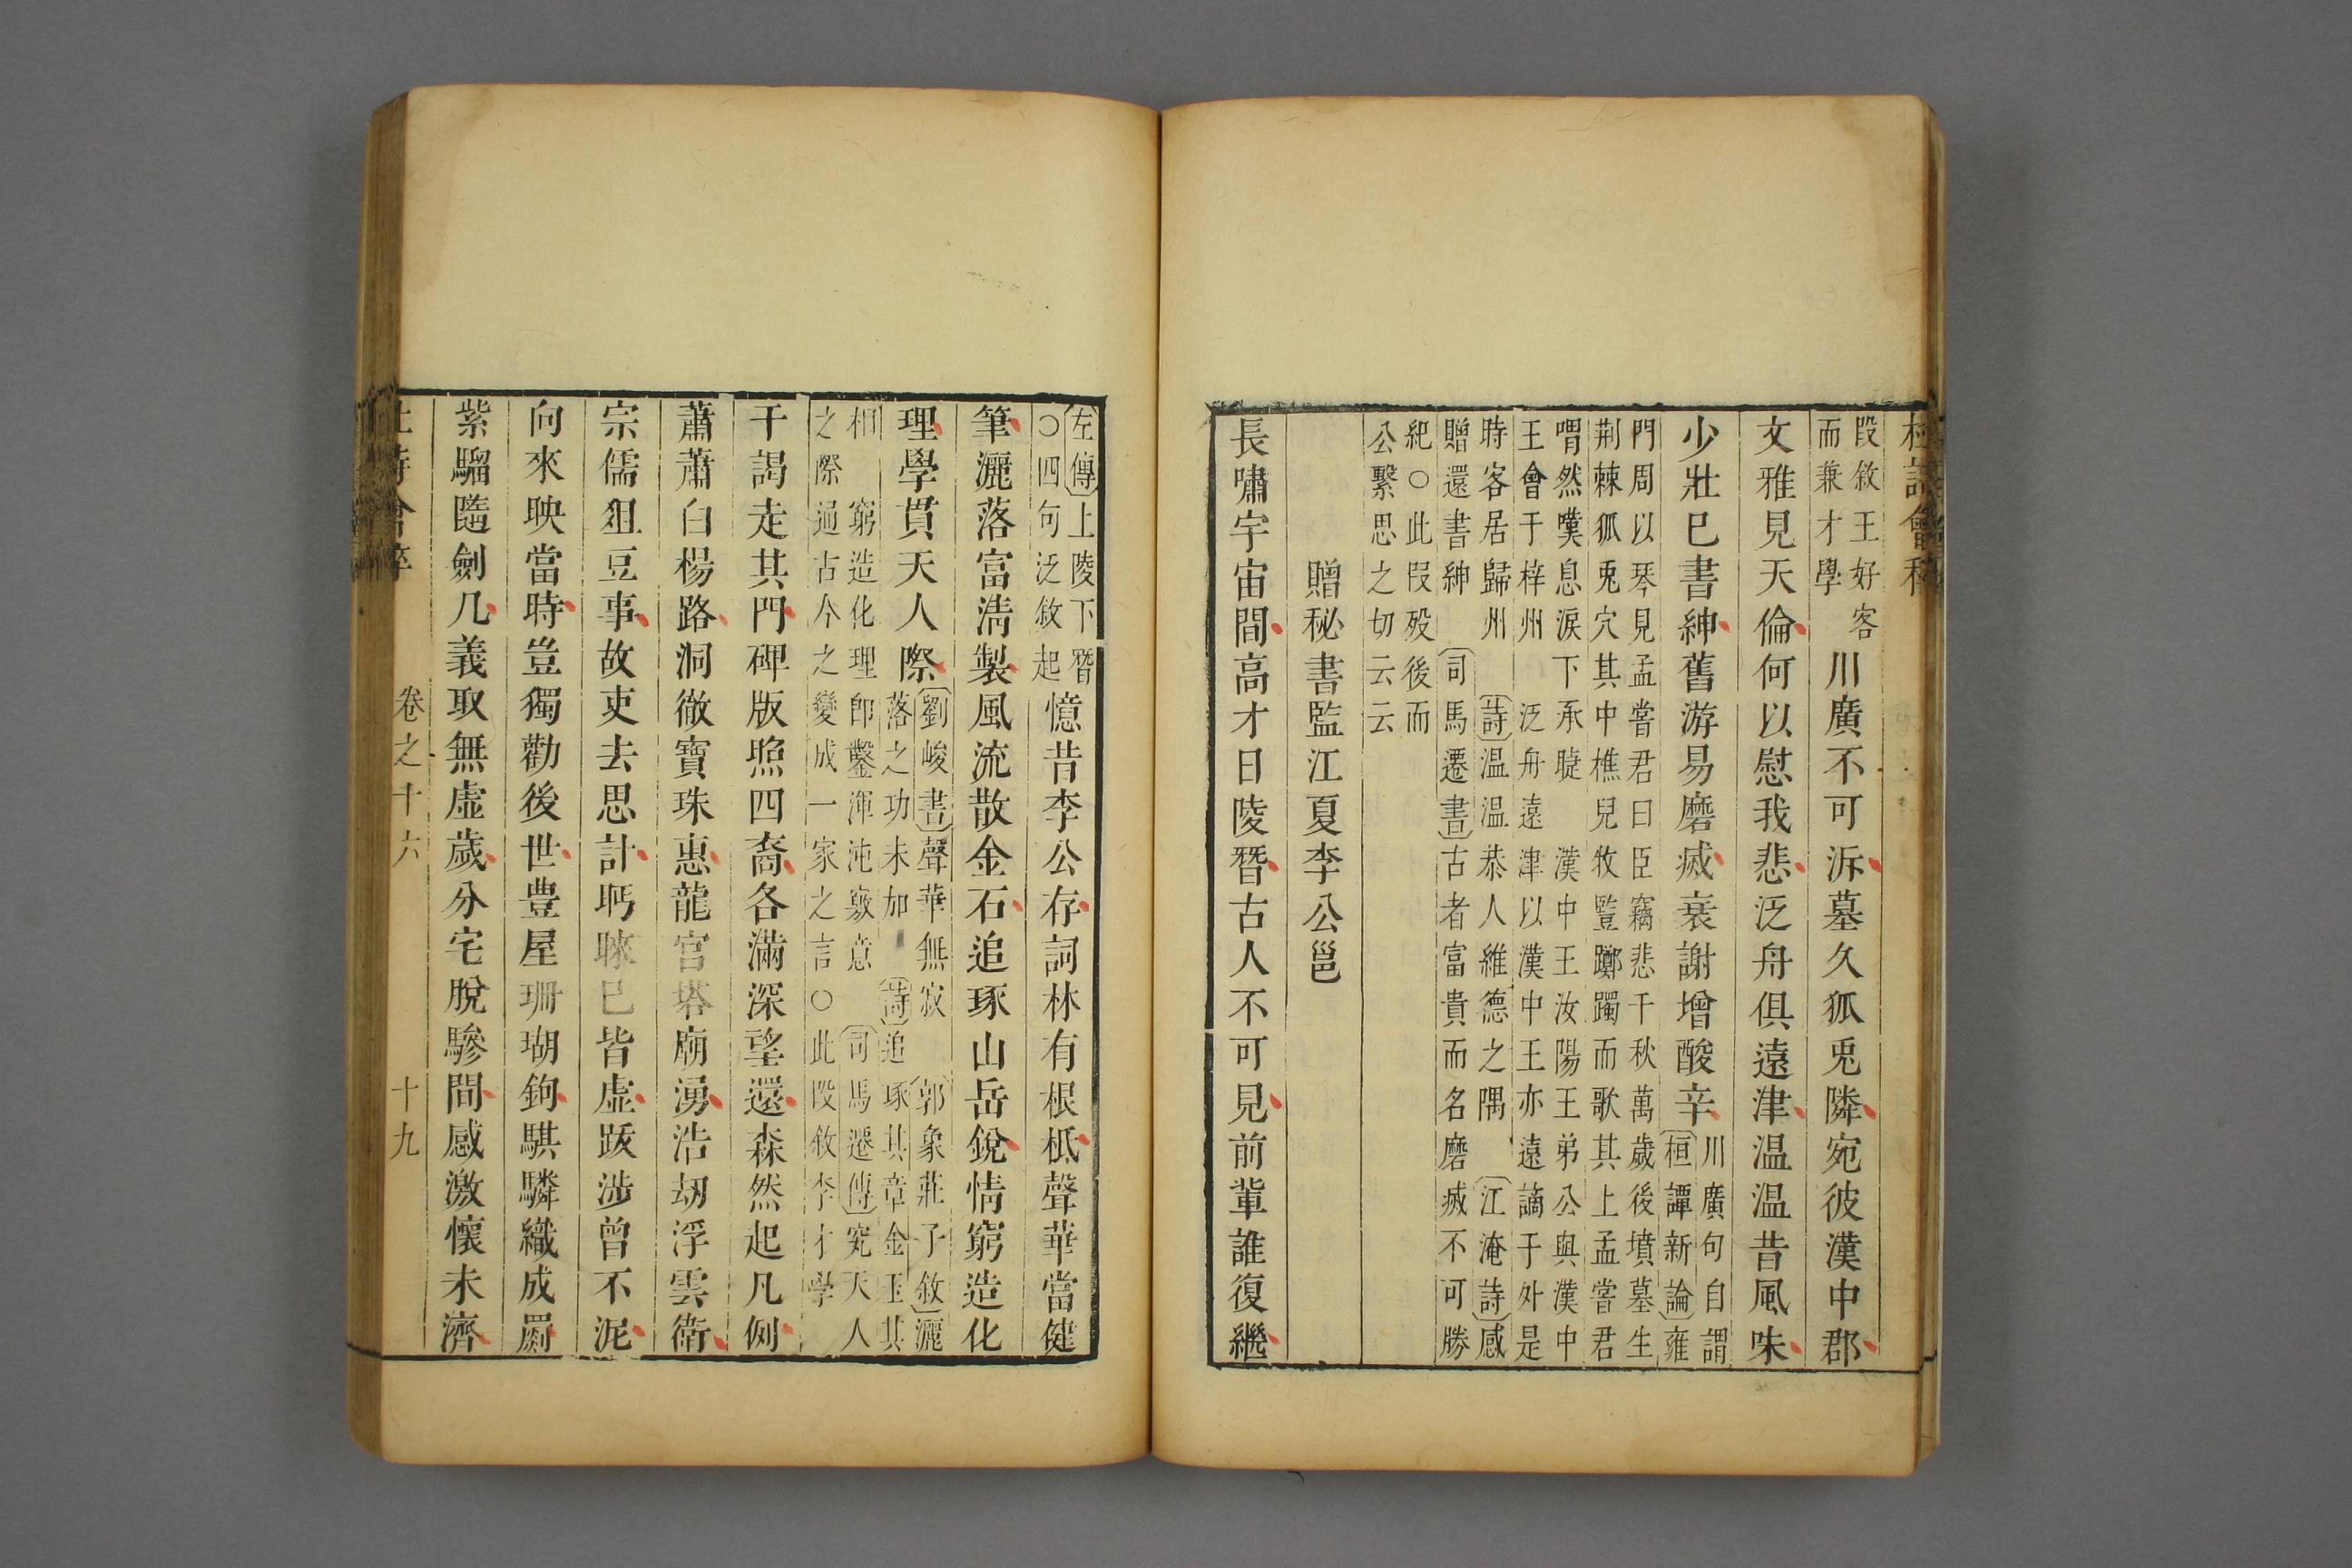 杜詩會稡
段敘王好客
而兼才學
川廣不可泝墓久狐兎隣宛彼漢中郡
文雅見天倫何以慰我悲泛舟俱遠津温温昔風味
少壯已書紳舊游易磨滅衰謝增酸辛
川廣句自謂
桓譚新論雍
門周以琴見孟嘗君曰臣竊悲千秋萬歲後墳墓生
荆棘狐兎穴其中樵兒牧豎躑躅而歌其上孟嘗君
喟然嘆息淚下承睫 漢中王汝陽王弟公與漢中
王會于梓州 泛舟遠津以漢中王亦遠謫于外是
時客居歸州 詩温温恭人維德之隅 江淹詩感
贈還書紳 司馬遷書古者富貴而名磨滅不可勝
紀○此段歿後而
公繫思之切云云
贈秘書監江夏李公邕
長嘯宇宙間高才日陵朁古人不可見前軰誰復繼
左傳上陵下朁
○四句泛敘起
憶昔李公存詞林有根柢聲華當健
筆灑落富淸製風流散金石追琢山岳銳情窮造化
理學貫天人際
劉峻書聲華無寂 郭象莊子敘灑
落之功未加 詩追琢其章金玉其
相 窮造化理卽鑿渾沌竅意 司馬遷傳究天人
之際通古今之變成一家之言○此段敘李才學
干謁走其門碑版照四裔各滿深望還森然起凡例
蕭蕭白楊路洞徹寶珠惠龍宫塔廟湧浩劫浮雲衛
宗儒俎豆事故吏去思計眄睞已皆虚跋涉曾不泥
向來映當時豈獨勸後世豊屋珊瑚鉤騏驎織成罽
紫騮隨劍几義取無虚歲分宅脫驂間感激懷未濟
杜詩會稡 卷之十六 十九